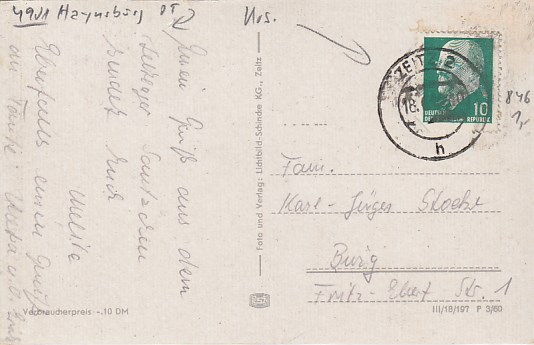 4901 Haynsburg OT
Nos.
Einen Gruß aus dem
Zeitzer
sendet Euch
Ebenfalls einen Gruß
an Tante
ZEITZ 2
18.
h
10
DEUTSCHE
DEMOKRATISCHE
REPUBLIK
846
1,-
Foto und Verlag: Lichtbild-Schincke KG., Zeitz
Fam.
Karl-Jürgen
Burg
Fritz-Ebert Str. 1
Verbraucherpreis -.10 DM
III/18/197 P 3/60